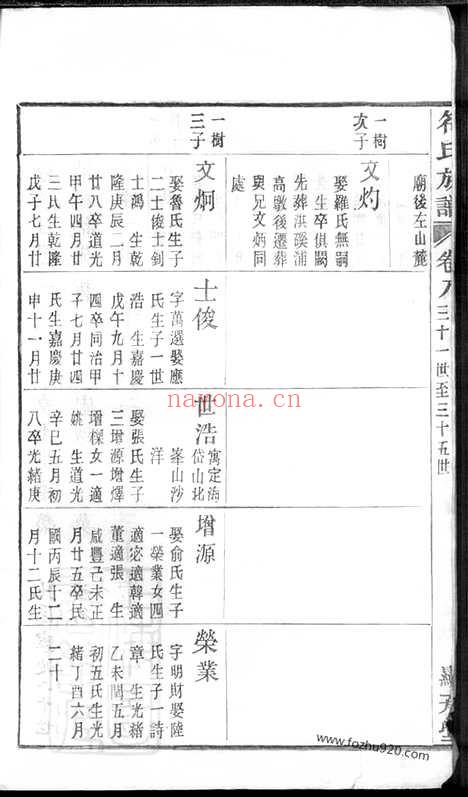 氏族譜 卷八 三十一世至三十五世
廟後左山麓
一樹
次子
文灼
娶羅氏無嗣
生卒俱闕
先葬洪溪浦
高墩後遷葬
與兄文炳同
處
一樹
三子
文炯
娶魯氏生子
二士俊士釗
士鴻 生乾
隆庚辰二月
廿八卒道光
甲午四月廿
三氏生乾隆
戊子七月廿
士俊
字萬選娶應
氏生子一世
浩 生嘉慶
戊午九月十
四卒同治甲
子七月廿四
氏生嘉慶庚
申十一月廿
世浩
寓定海
岱山北
峯山沙
洋
娶張氏生子
三增源增燡
增樑女一適
姚 生道光
辛巳五月初
八卒光緒庚
增源
娶俞氏生子
一榮業女四
適宓適韓適
董適張 生
咸豐己未正
月廿五卒民
國丙辰十二
月十二氏生
榮業
字明財娶陸
氏生子一詩
章 生光緒
乙未閏五月
初五氏生光
緒丁酉六月
二十
nayona.cn
www.fozhu920.com